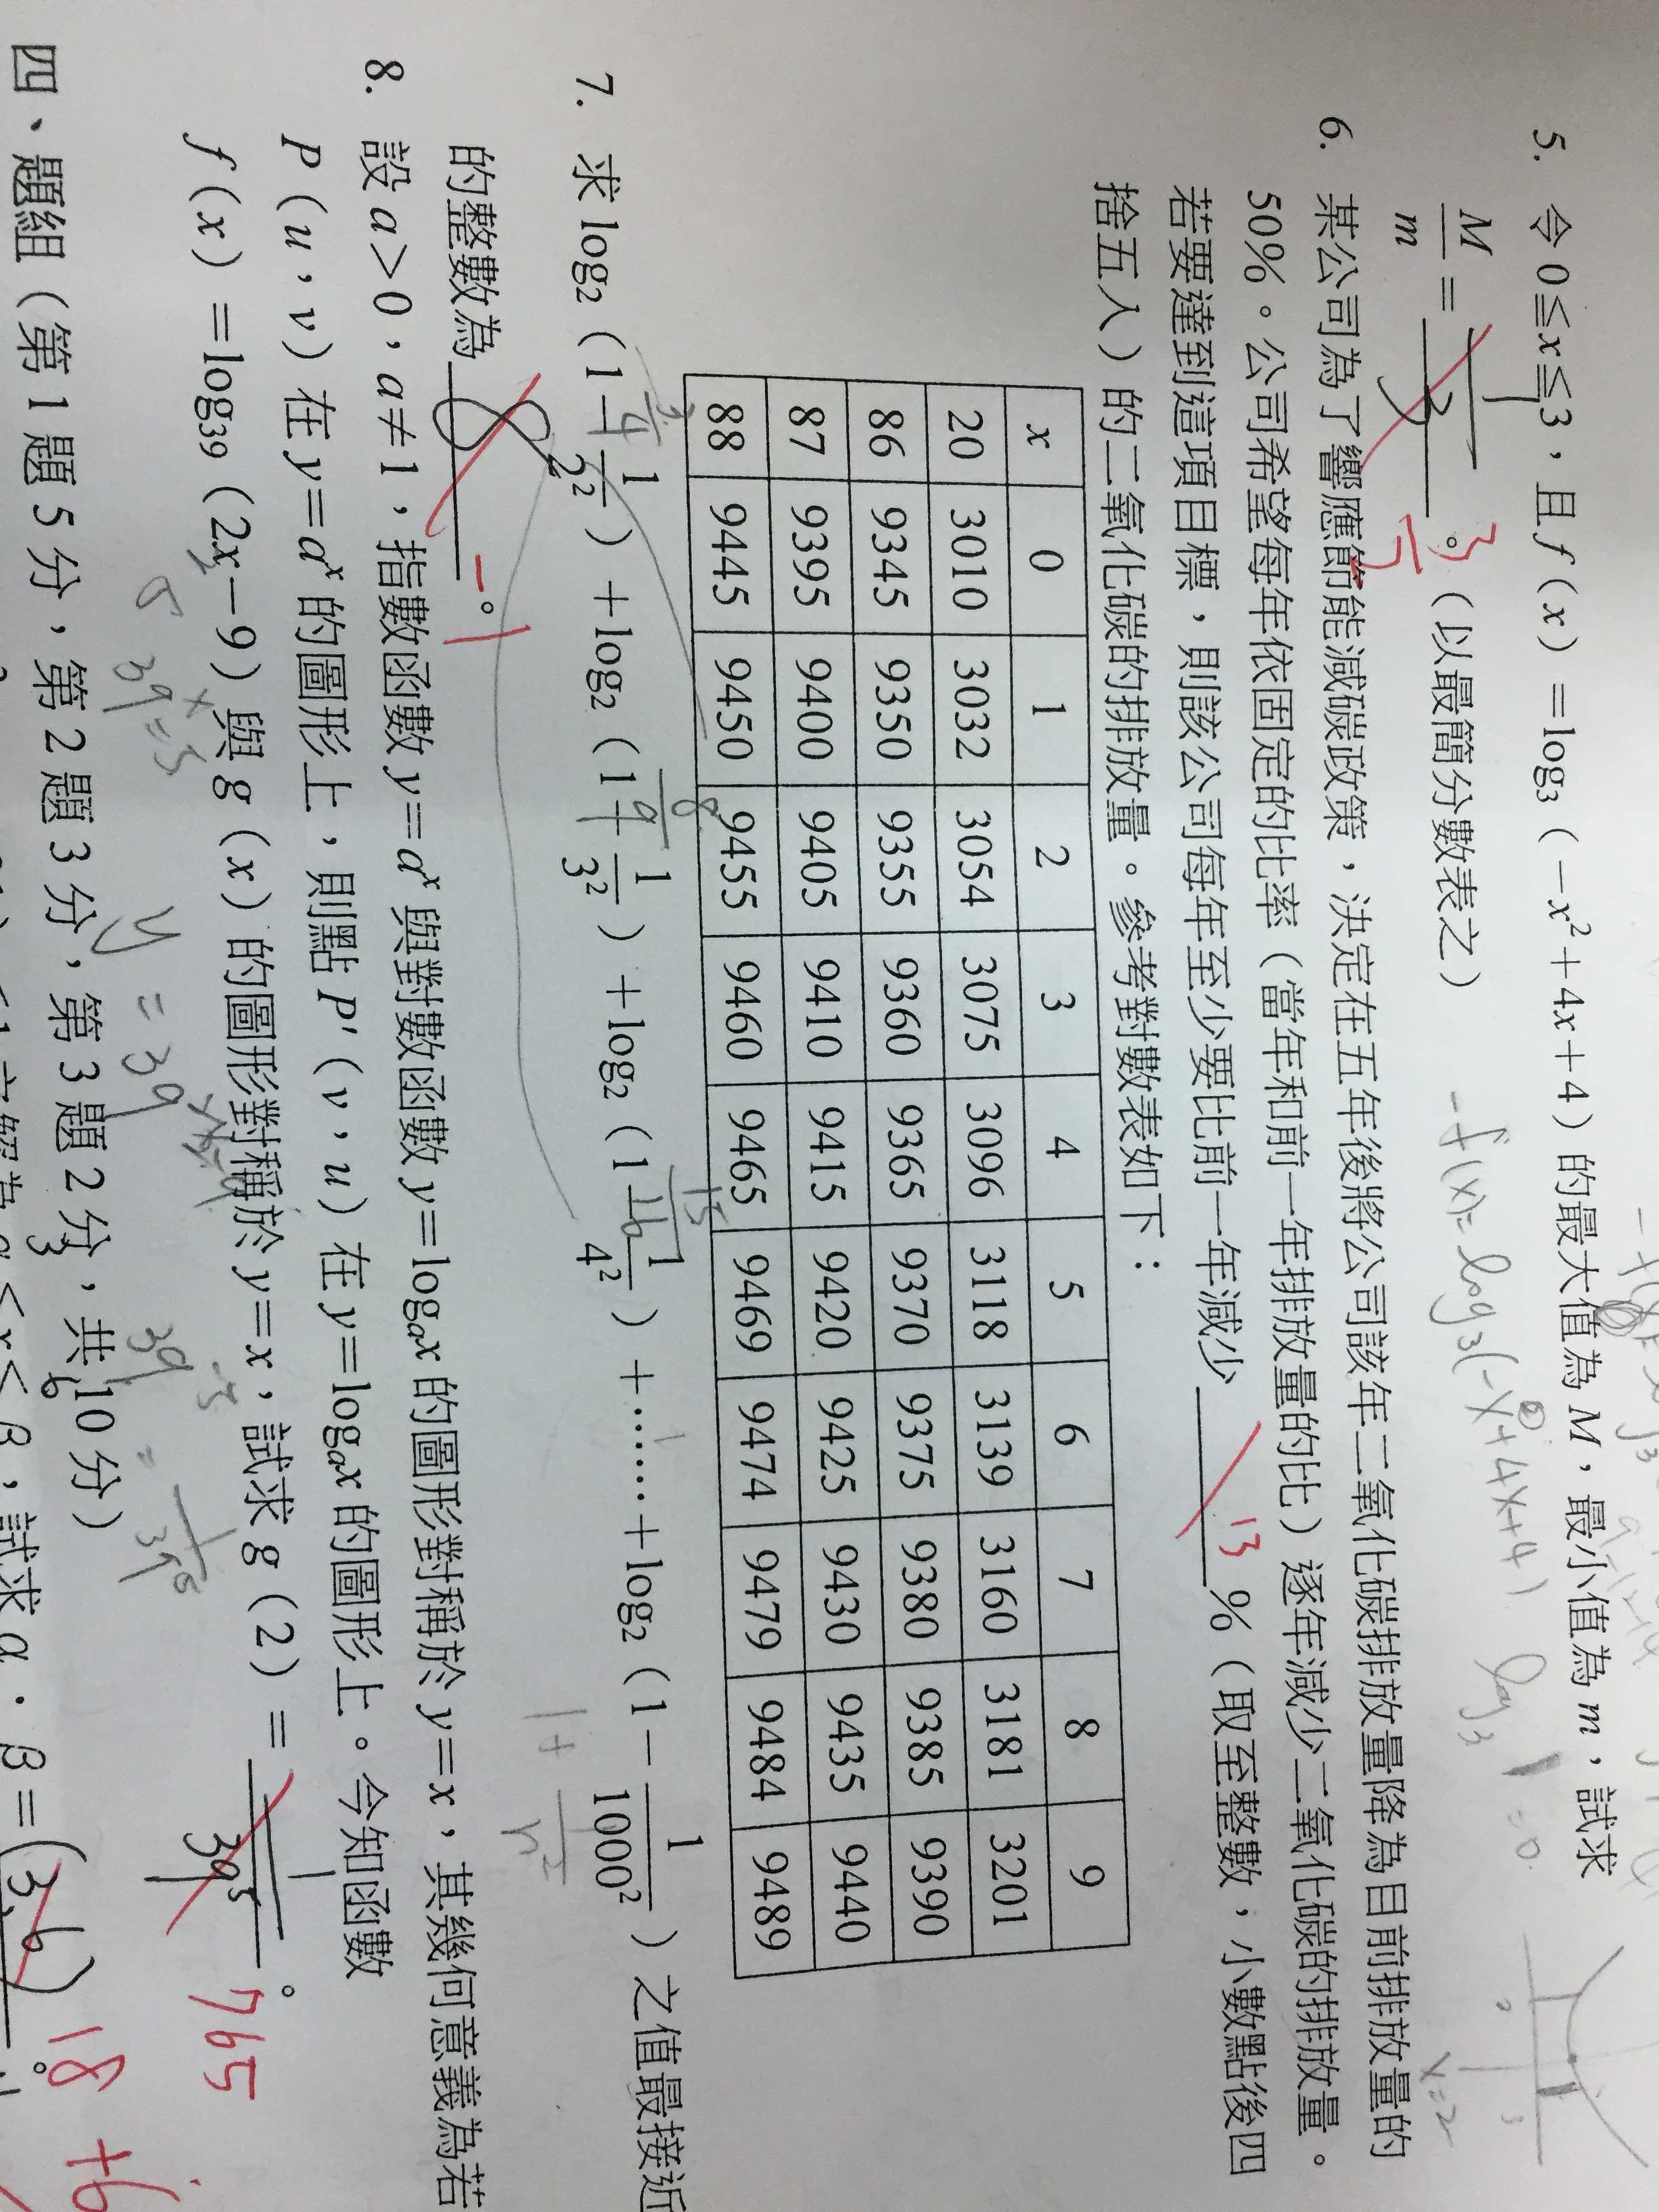 5. 令 0≦x≦3，且 f（x）=log₃（-x²+4x+4）的最大值為 M，最小值為 m，試求
M/m = 。（以最簡分數表之）
3/2
-f(x)=log₃(-x²+4x+4)
log₃ 1 = 0
x=2
6. 某公司為了響應節能減碳政策，決定在五年後將公司該年二氧化碳排放量降為目前排放量的
50%。公司希望每年依固定的比率（當年和前一年排放量的比）逐年減少二氧化碳的排放量。
若要達到這項目標，則該公司每年至少要比前一年減少 13 %（取至整數，小數點後四
捨五入）的二氧化碳的排放量。參考對數表如下：
x 0 1 2 3 4 5 6 7 8 9
20 3010 3032 3054 3075 3096 3118 3139 3160 3181 3201
86 9345 9350 9355 9360 9365 9370 9375 9380 9385 9390
87 9395 9400 9405 9410 9415 9420 9425 9430 9435 9440
88 9445 9450 9455 9460 9465 9469 9474 9479 9484 9489
7. 求 log₂（1-1/2²）+log₂（1-1/3²）+log₂（1-1/4²）+……+log₂（1-1/1000²）之值最接近
3/4 8/9 15/16
的整數為 8 。
-1
8. 設 a>0，a≠1，指數函數 y=aˣ 與對數函數 y=logₐx 的圖形對稱於 y=x，其幾何意義為若
P（u，v）在 y=aˣ 的圖形上，則點 P'（v，u）在 y=logₐx 的圖形上。今知函數
f（x）=log₃₉（2x-9）與 g（x）的圖形對稱於 y=x，試求 g（2）= 1/39⁵ 。
765
39ˣ=5
y = 39
39⁻⁵ = 1/39⁵
四、題組（第 1 題 5 分，第 2 題 3 分，第 3 題 2 分，共 10 分）
試求 α．β= (3,6) 。
18 +6